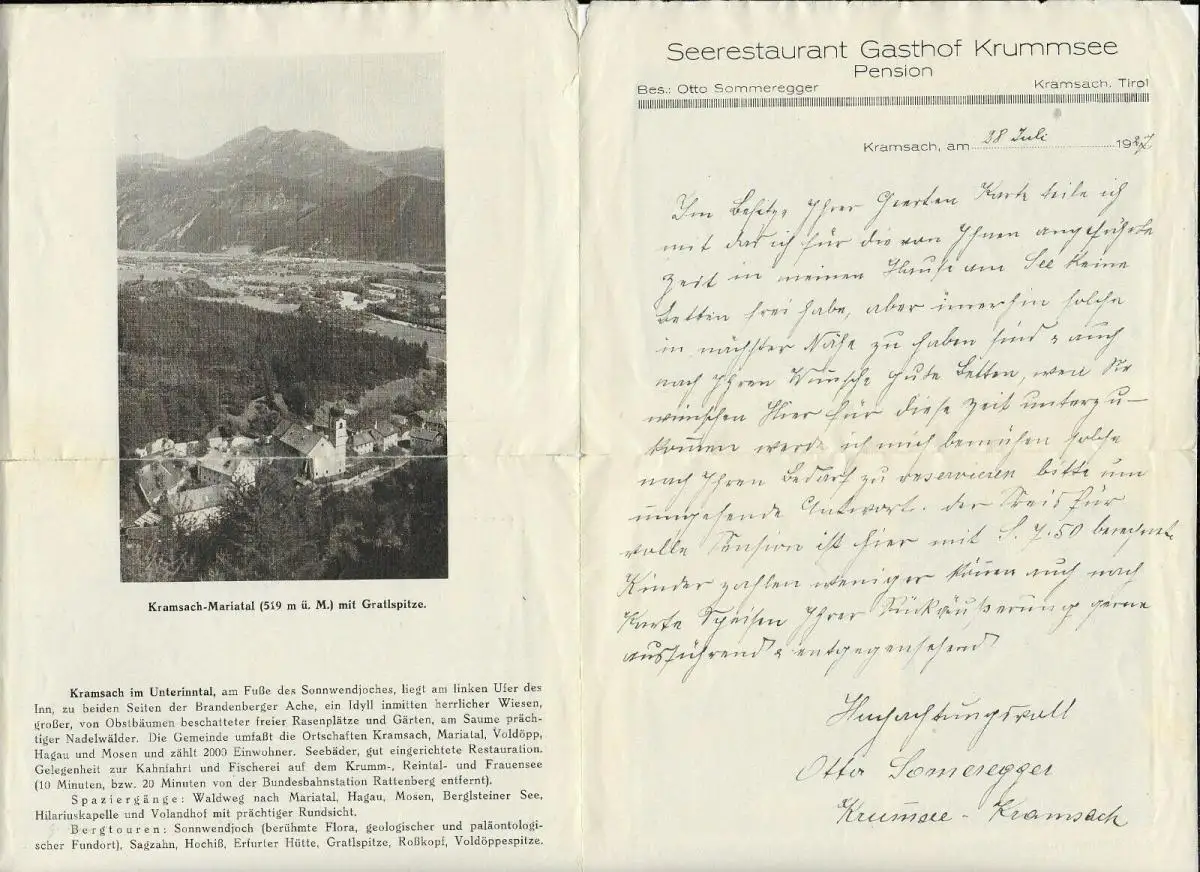 Kramsach-Mariatal (519 m ü. M.) mit Gratlspitze.
Kramsach im Unterinntal, am Fuße des Sonnwendjoches, liegt am linken Ufer des
Inn, zu beiden Seiten der Brandenberger Ache, ein Idyll inmitten herrlicher Wiesen,
großer, von Obstbäumen beschatteter freier Rasenplätze und Gärten, am Saume präch-
tiger Nadelwälder. Die Gemeinde umfaßt die Ortschaften Kramsach, Mariatal, Voldöpp,
Hagau und Mosen und zählt 2000 Einwohner. Seebäder, gut eingerichtete Restauration.
Gelegenheit zur Kahnfahrt und Fischerei auf dem Krumm-, Reintal- und Frauensee
(10 Minuten, bzw. 20 Minuten von der Bundesbahnstation Rattenberg entfernt).
Spaziergänge: Waldweg nach Mariatal, Hagau, Mosen, Berglsteiner See,
Hilariuskapelle und Volandhof mit prächtiger Rundsicht.
Bergtouren: Sonnwendjoch (berühmte Flora, geologischer und paläontologi-
scher Fundort), Sagzahn, Hochiß, Erfurter Hütte, Gratlspitze, Roßkopf, Voldöppespitze.
Seerestaurant Gasthof Krummsee
Pension
Bes.: Otto Sommeregger Kramsach, Tirol
Kramsach, am 28 Juli 1927
Im Besitze Ihrer Geerten Karte teile ich
mit das ich für die von Ihnen angeführte
Zeit in meinen Hause am See keine
Betten frei habe, aber im̅erhin solche
in nächster Nähe zu haben sind & auch
nach Ihren Wunsche gute Betten, wen Sie
wünschen Hier für diese Zeit unterzu-
kom̅en werde ich mich bemühen solche
nach Ihren Bedarf zu reservieren bitte um
umgehende Antwort. der Preis für
volle Pension ist hier mit S. 7.50 berechnet.
Kinder zahlen weniger kön̅en auch nach
Karte Speisen Ihrer Rückäußerung gerne
ausführend & entgegensehend
Hochachtungsvoll
Otto Som̅eregger
Krum̅see - Kramsach